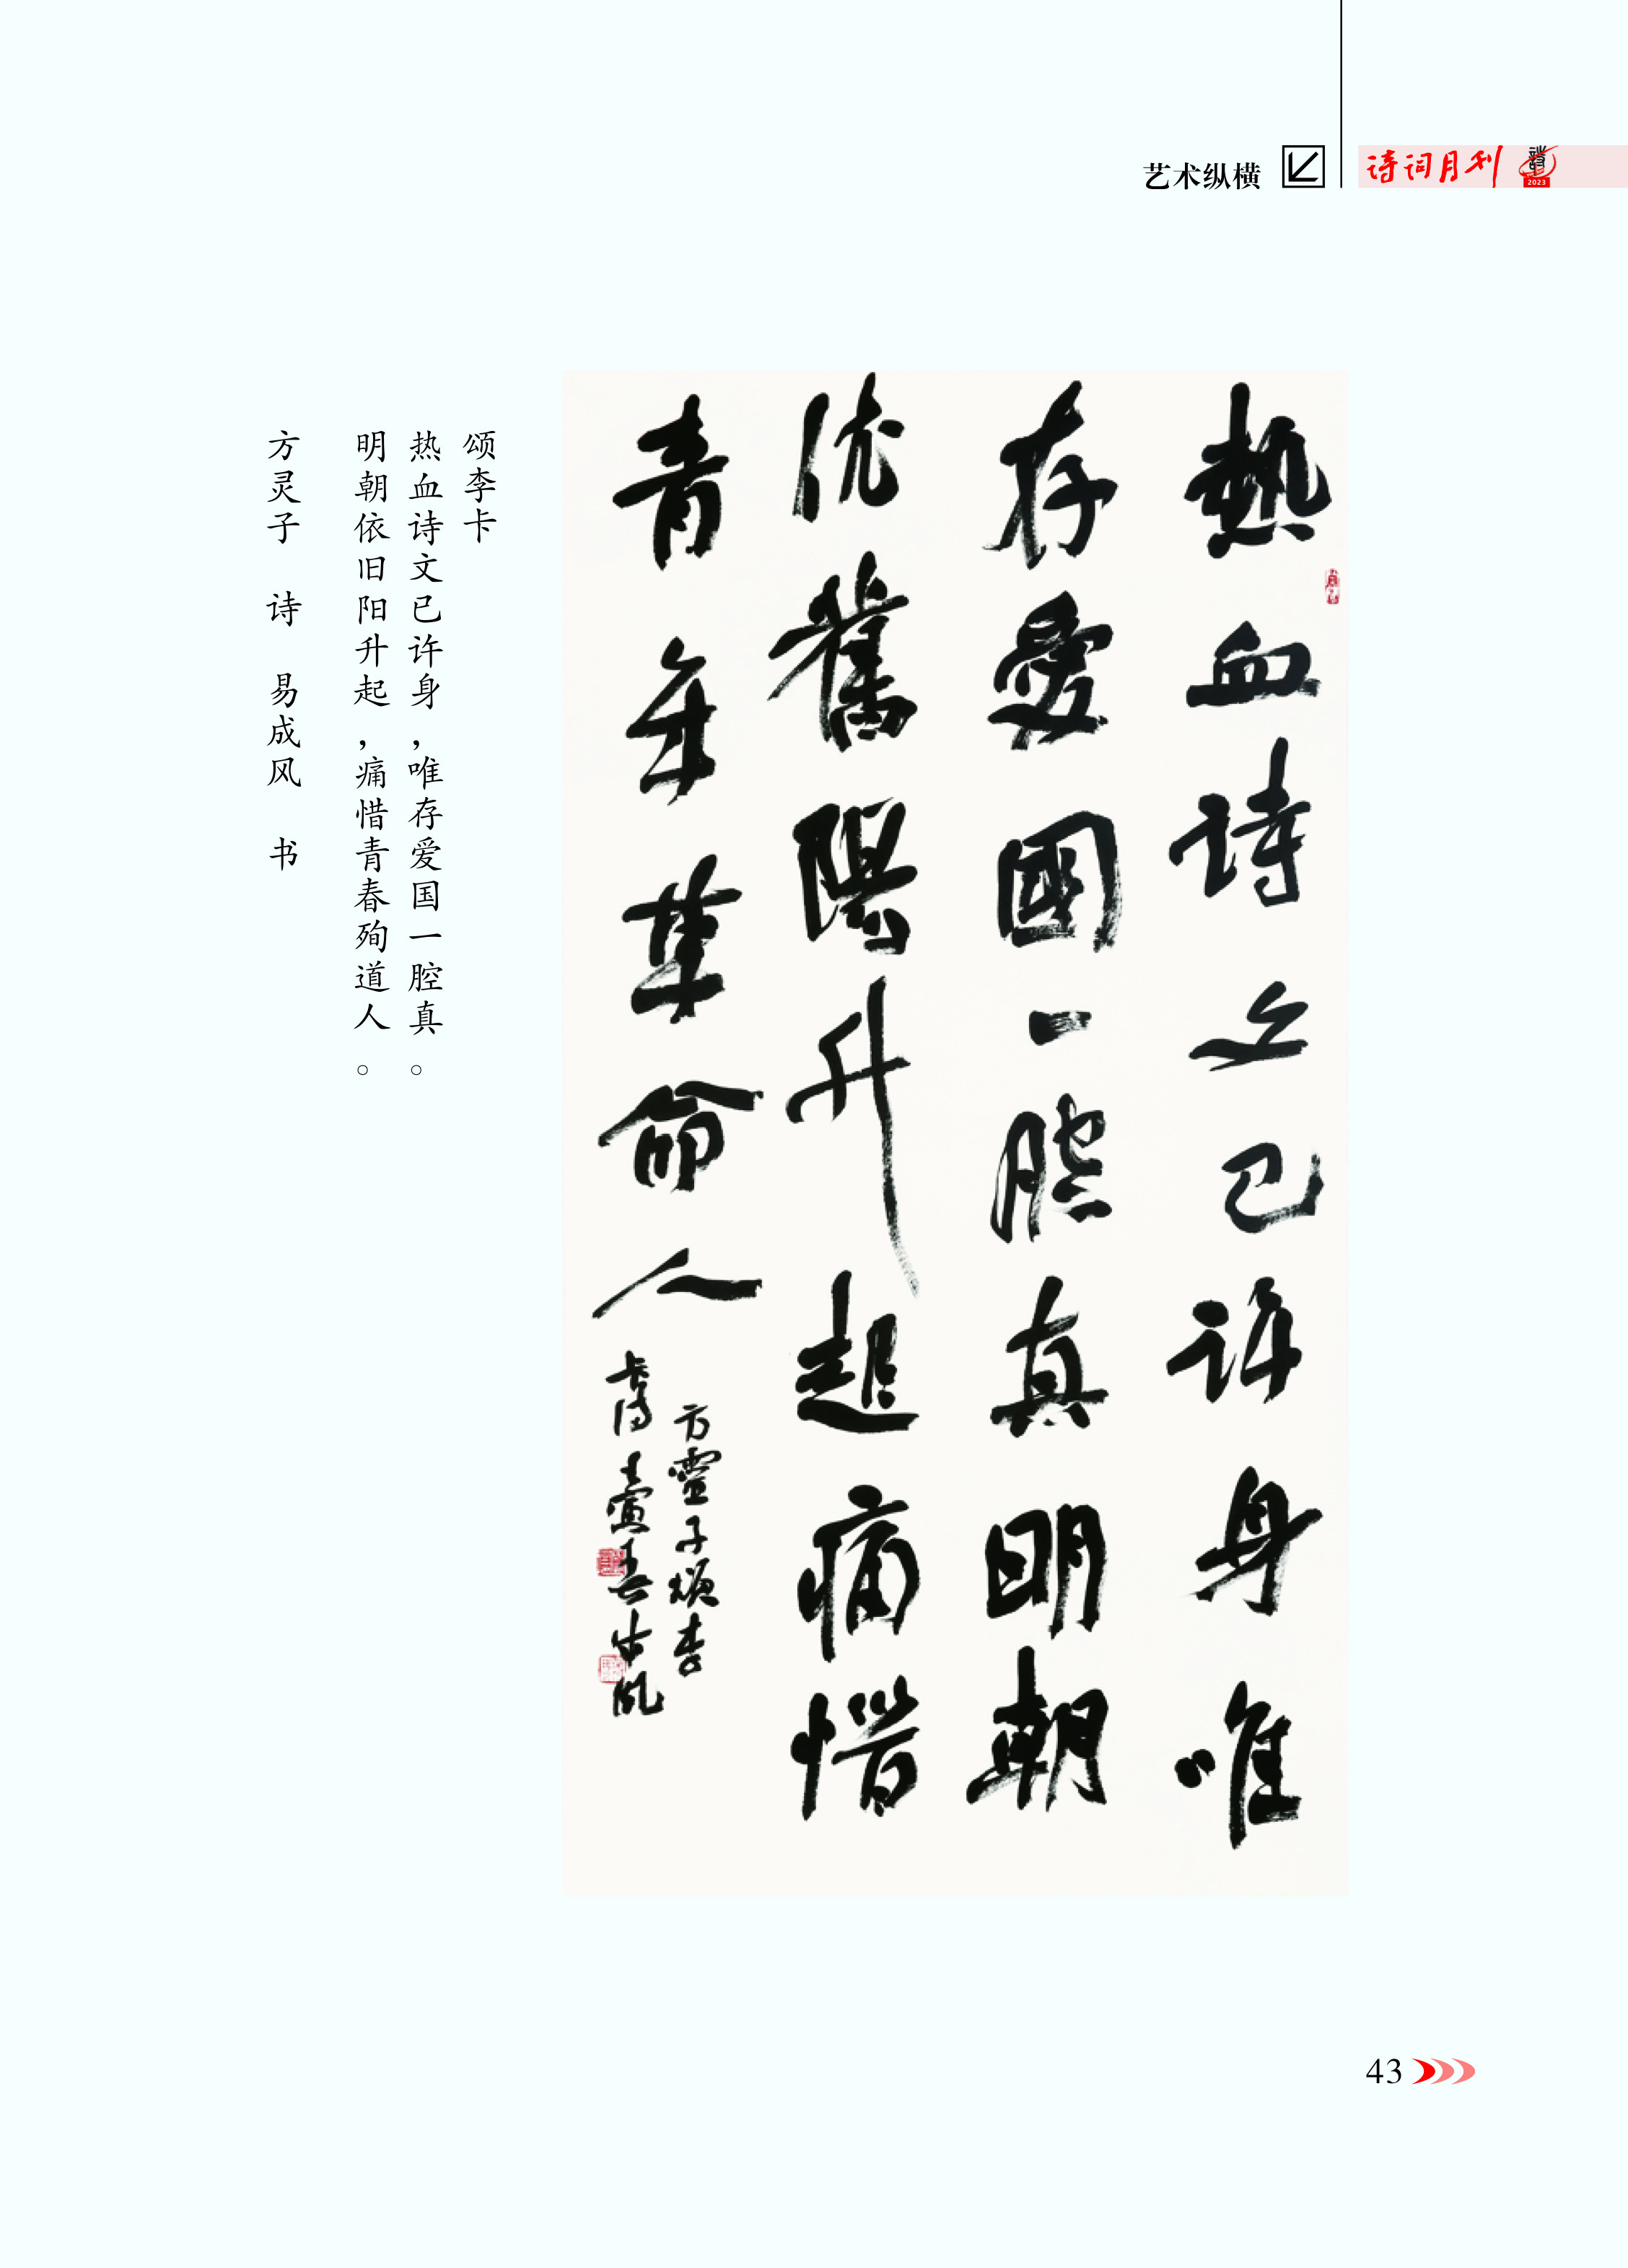 艺术纵横
诗词月刊
2023
熱血詩文已許身唯
存愛國一腔真明朝
依舊陽升起痛惜
青年革命人
方靈子頌李
卡詩壬寅春成風
颂李卡
热血诗文已许身，唯存爱国一腔真。
明朝依旧阳升起，痛惜青春殉道人。
方灵子 诗 易成风 书
43